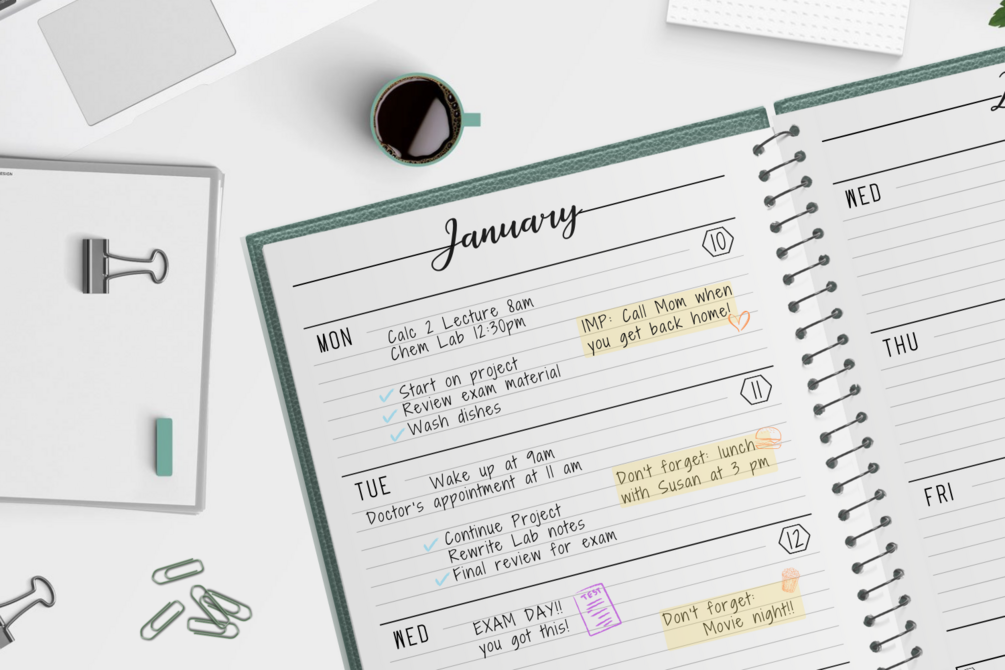 DESIGN
January
10
MON
Calc 2 Lecture 8am
Chem Lab 12:30pm
IMP: Call Mom when
you get back home!
Start on project
Review exam material
Wash dishes
11
TUE
Wake up at 9am
Doctor's appointment at 11 am
Don't forget: lunch
with Susan at 3 pm
Continue Project
Rewrite Lab notes
Final review for exam
12
WED
EXAM DAY!!
you got this!
TEST
Don't forget:
Movie night!!
WED
THU
FRI